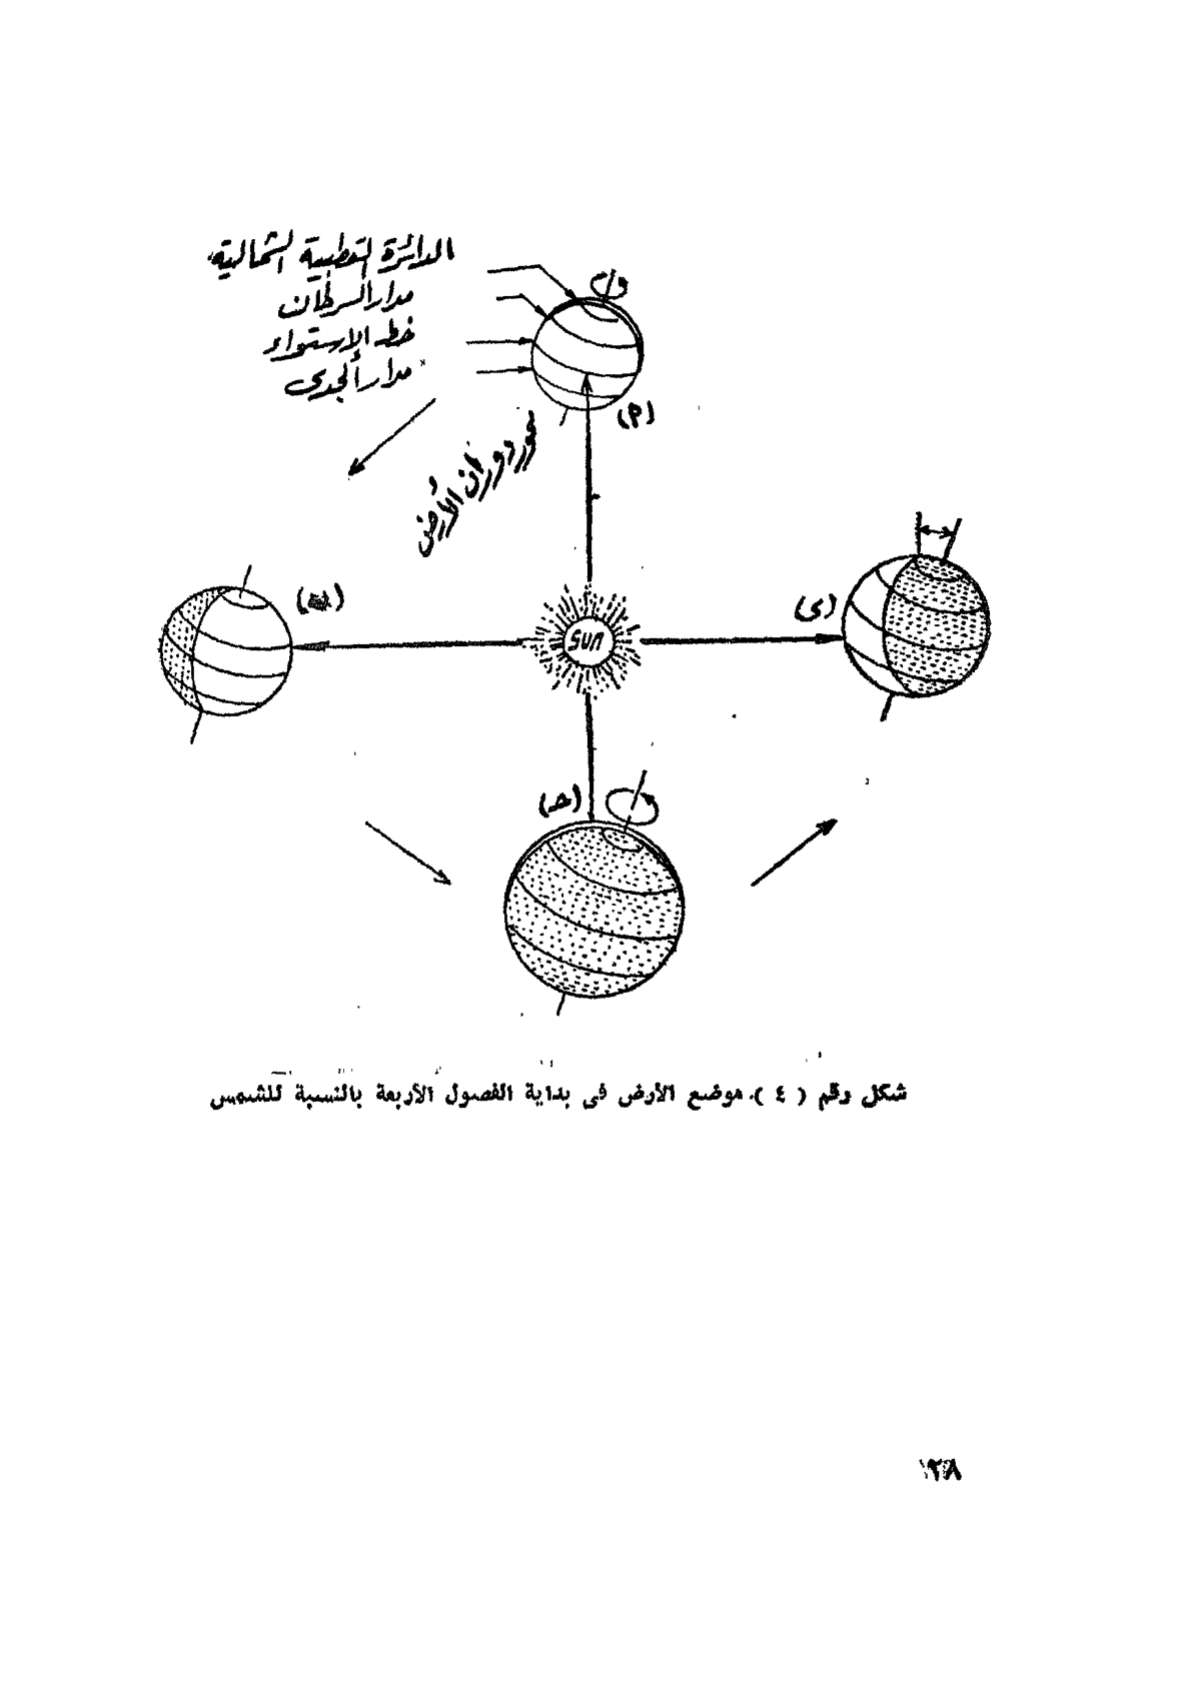 الدائرة القطبية الشمالية
مدار السرطان
خط الاستواء
مدار الجدى
(م)
محور دوران الأرض
(ى)
SUN
(حـ)
شكل رقم ( ٤ ) موضع الأرض فى بداية الفصول الأربعة بالنسبة للشمس
١٣٨